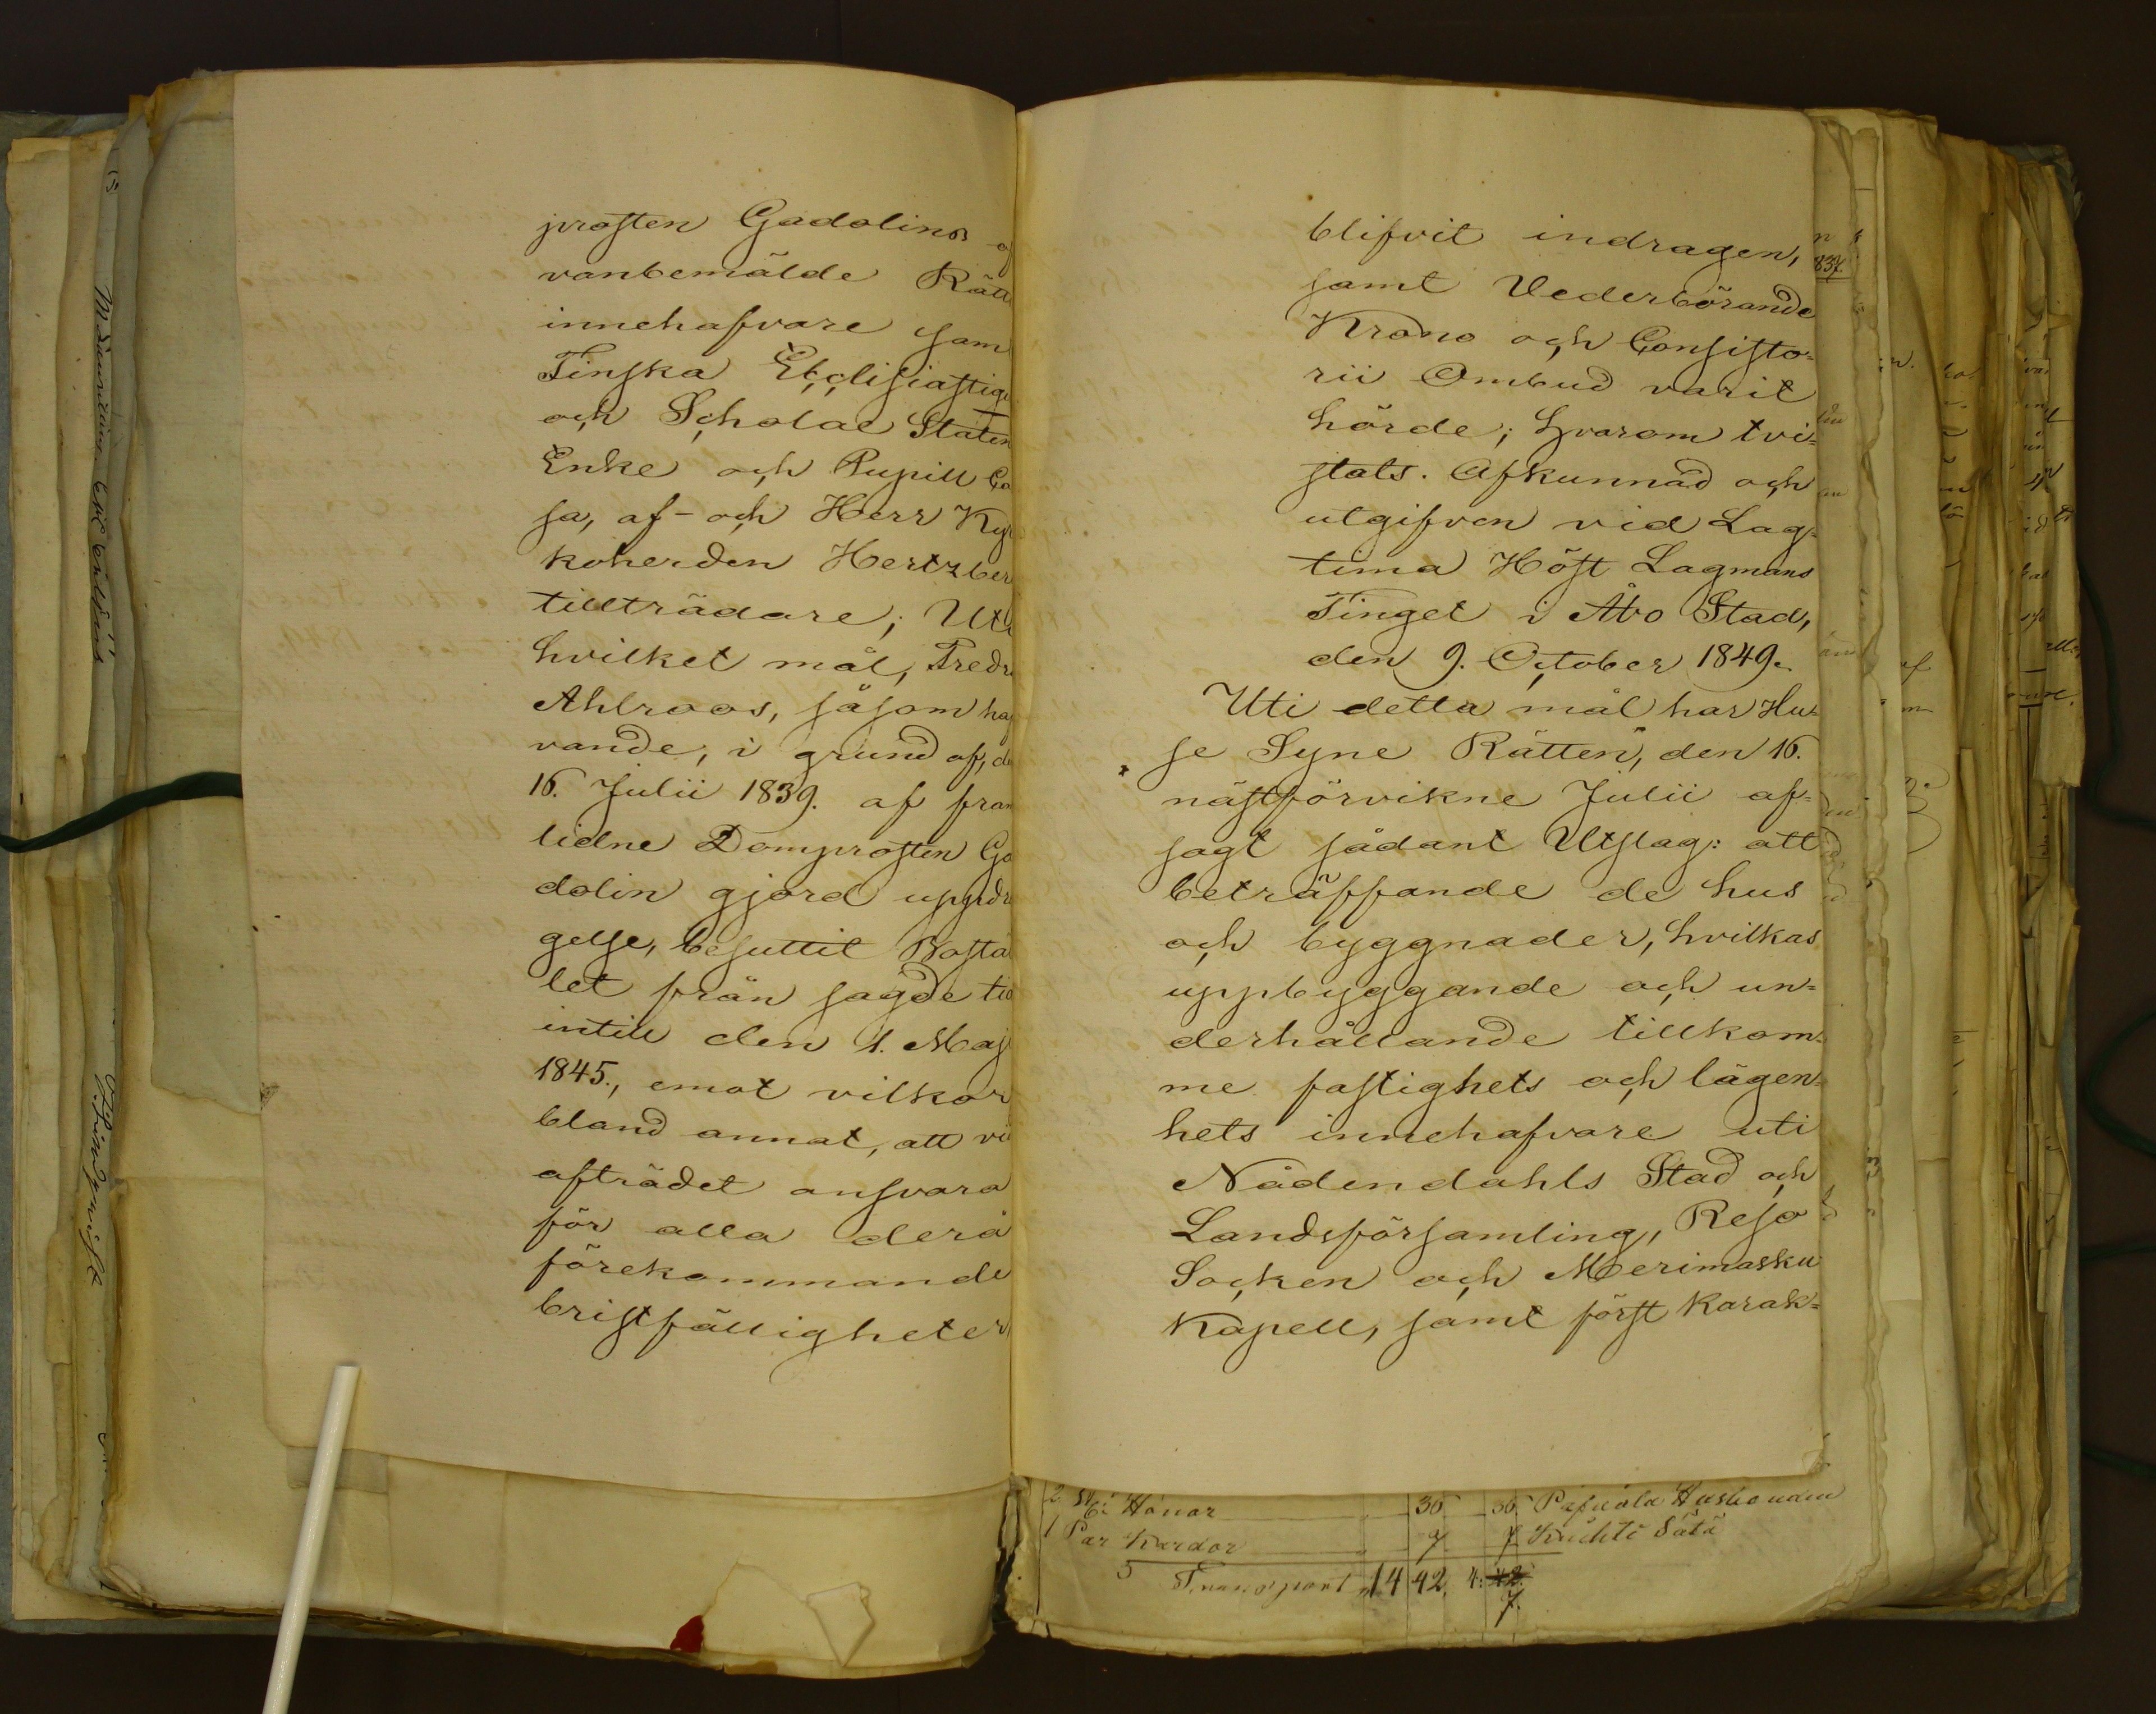 prosten Gadolins
vanbemälde Rätt
innehafvare sam
Finska Ecclisiastig
och Scholae Staten
Enke och Pupill Ca
sa, af- och Herr Kyr
koherden Hertzber
tillträdare; Uti
hvilket mål, Fredr
Ahlroos, såsom haf
vande, i grund af, de
16. Julii 1839. af fram
lidne Domprosten Ga
dolin gjord uppdra
gelse, besuttit Bostäl
let från sagde tid
intill den 1. Maji
1845., emot vilkor
bland annat, att vid
afträdet ansvara
för alla derå
förekommande
bristfälligheter
blifvit indragen,
samt Vederbörande
Krono och Consisto-
rii Ombud varit
hörde; hvarom tvi-
stats. Afkunnad och
utgifven vid Lag-
tima Höst Lagmans
Tinget i Åbo Stad,
den 9. October 1849.
Uti detta mål har Hu-
se Syne Rätten, den 16.
nästförvikne Julii af-
sagt sådant Utslag: att
beträffande de hus
och byggnader, hvilkas
uppbyggande och un-
derhållande tillkom-
me fastighets och lägen-
hets innehafvare uti
Nådendahls Stad och
Landsförsamling, Reso
Socken och Merimasku
Kapell, samt först Karak-
2 St Hönor 36 36
1 Par Kardor 7 7
Transport 14 42. 4: 42.
7.